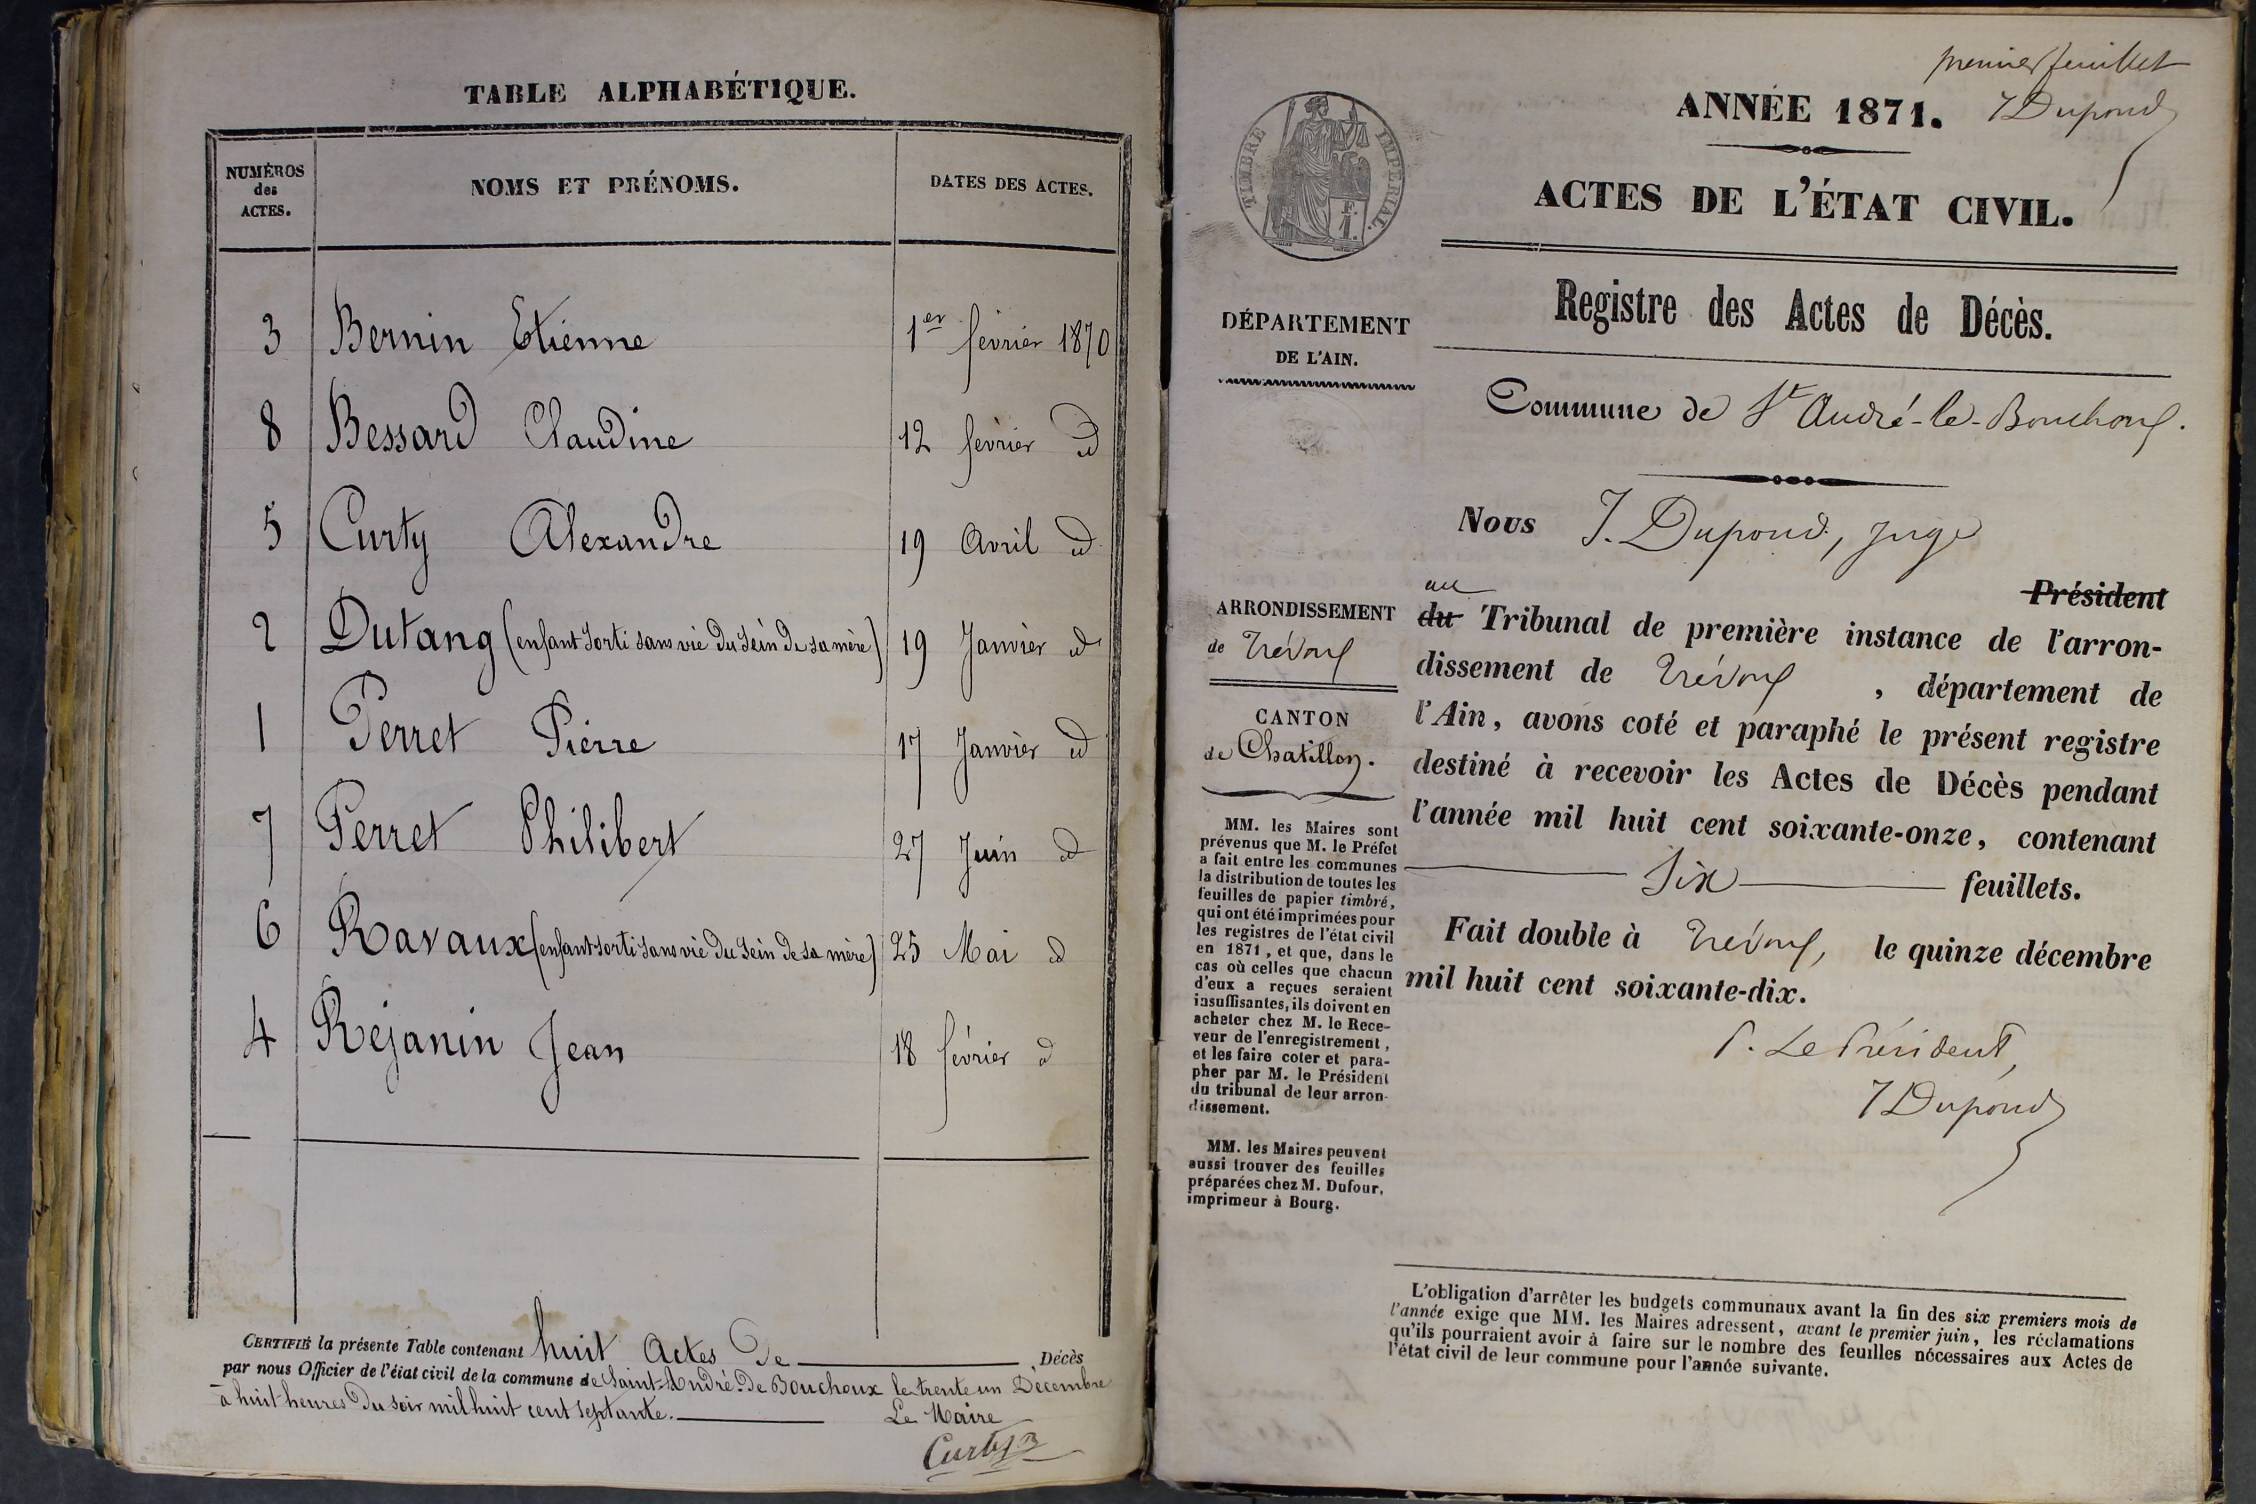 TABLE ALPHABÉTIQUE.
NUMÉROS des ACTES. NOMS ET PRÉNOMS. DATES DES ACTES.
3 Bernin Etienne 1er février 1870
8 Bessard Claudine 12 février d
5 Curty Alexandre 19 Avril d
2 Dutang (enfant sorti sans vie du sein de sa mère) 19 Janvier d
1 Perret Pierre 17 Janvier d
7 Perret Philibert 27 Juin d
6 Ravaux (enfant sorti sans vie du sein de sa mère) 25 Mai d
4 Réjanin Jean 18 février d
CERTIFIÉ la présente Table contenant huit Actes de Décès
par nous Officier de l'état civil de la commune de Saint-André-de Bouchoux le trente un Décembre
à huit heures du soir mil huit cent septante.
Le Maire
Curty
premier feuillet
JDupond
ANNÉE 1871.
TIMBRE IMPERIAL.
F.
1.
ACTES DE L'ÉTAT CIVIL.
Registre des Actes de Décès.
DÉPARTEMENT
DE L'AIN.
Commune de St André-le-Bouchoux.
ARRONDISSEMENT
de Trévoux
CANTON
de Chatillon.
MM. les Maires sont
prévenus que M. le Préfet
a fait entre les communes
la distribution de toutes les
feuilles de papier timbré,
qui ont été imprimées pour
les registres de l'état civil
en 1871, et que, dans le
cas où celles que chacun
d'eux a reçues seraient
insuffisantes, ils doivent en
acheter chez M. le Rece-
veur de l'enregistrement,
et les faire coter et para-
pher par M. le Président
du tribunal de leur arron-
dissement.
MM. les Maires peuvent
aussi trouver des feuilles
préparées chez M. Dufour,
imprimeur à Bourg.
Nous J. Dupond, juge
Président
au
du Tribunal de première instance de l'arron-
dissement de Trévoux, département de
l'Ain, avons coté et paraphé le présent registre
destiné à recevoir les Actes de Décès pendant
l'année mil huit cent soixante-onze, contenant
six feuillets.
Fait double à Trévoux, le quinze décembre
mil huit cent soixante-dix.
P. Le Président,
JDupond
L'obligation d'arrêter les budgets communaux avant la fin des six premiers mois de
l'année exige que MM. les Maires adressent, avant le premier juin, les réclamations
qu'ils pourraient avoir à faire sur le nombre des feuilles nécessaires aux Actes de
l'état civil de leur commune pour l'année suivante.